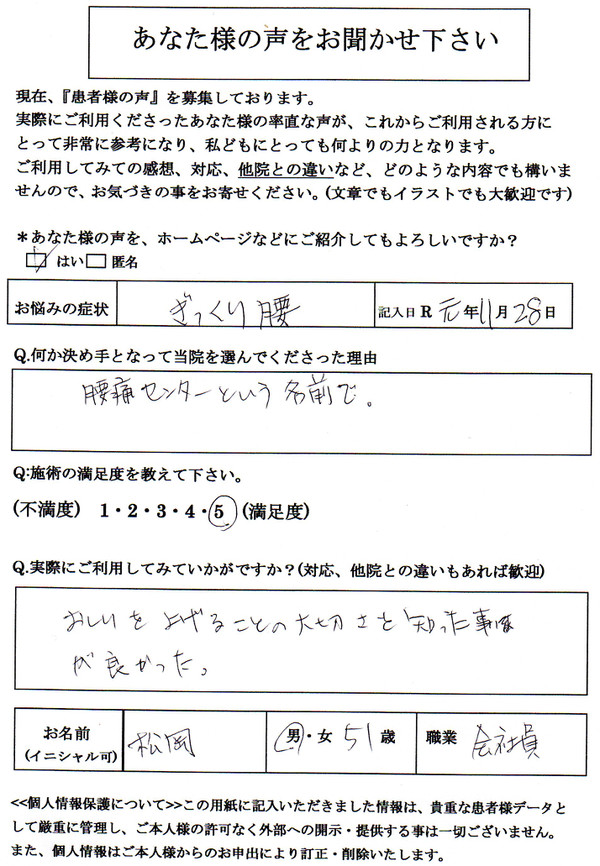 あなた様の声をお聞かせ下さい
現在、『患者様の声』を募集しております。
実際にご利用くださったあなた様の率直な声が、これからご利用される方に
とって非常に参考になり、私どもにとっても何よりの力となります。
ご利用してみての感想、対応、他院との違いなど、どのような内容でも構いま
せんので、お気づきの事をお寄せください。(文章でもイラストでも大歓迎です)
＊あなた様の声を、ホームページなどにご紹介してもよろしいですか？
はい 匿名
お悩みの症状 ぎっくり腰 記入日 R 元年11月28日
Q.何か決め手となって当院を選んでくださった理由
腰痛センターという名前で。
Q:施術の満足度を教えて下さい。
(不満度) 1・2・3・4・5 (満足度)
Q.実際にご利用してみていかがですか？(対応、他院との違いもあれば歓迎)
おしりを ることの大切さと知った事
が良かった。
お名前 松岡 男・女 51歳 職業 会社員
(イニシャル可)
<<個人情報保護について>>この用紙に記入いただきました情報は、貴重な患者様データと
して厳重に管理し、ご本人様の許可なく外部への開示・提供する事は一切ございません。
また、個人情報はご本人様からのお申出により訂正・削除いたします。